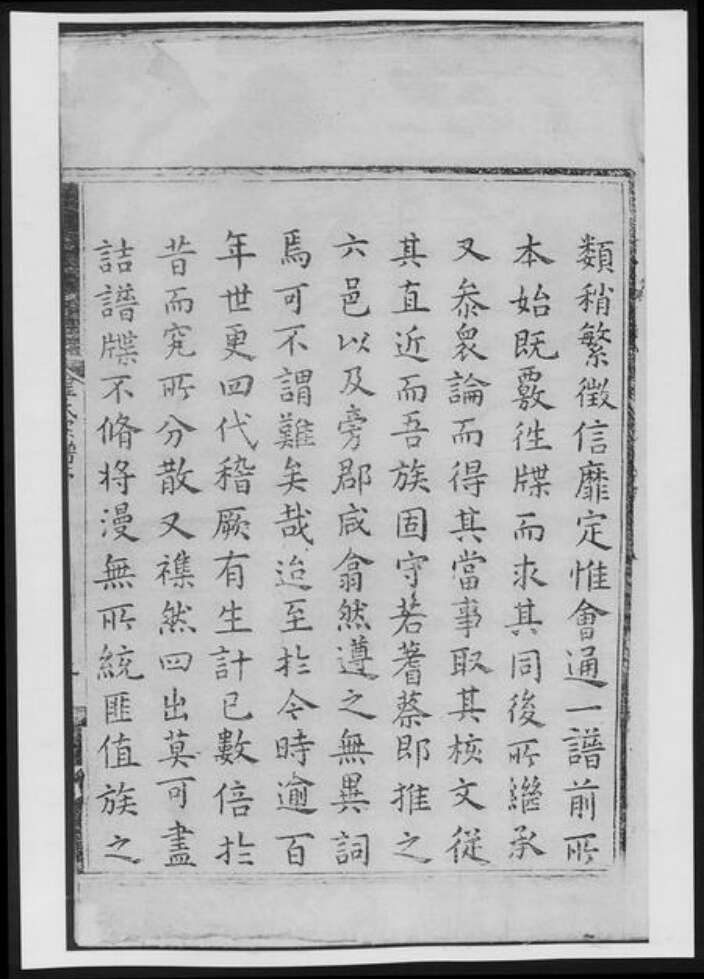 類稍繁徵信靡定惟會通一譜前所
本始既覈徃牒而求其同後所繼承
又叅衆論而得其當事取其核文從
其直近而吾族固守若蓍蔡即推之
六邑以及旁郡咸翕然遵之無異詞
焉可不謂難矣哉迨至於今時逾百
年世更四代稽厥有生計已數倍於
昔而究所分散又襍然四出莫可盡
詰譜牒不脩將漫無所統匪值族之